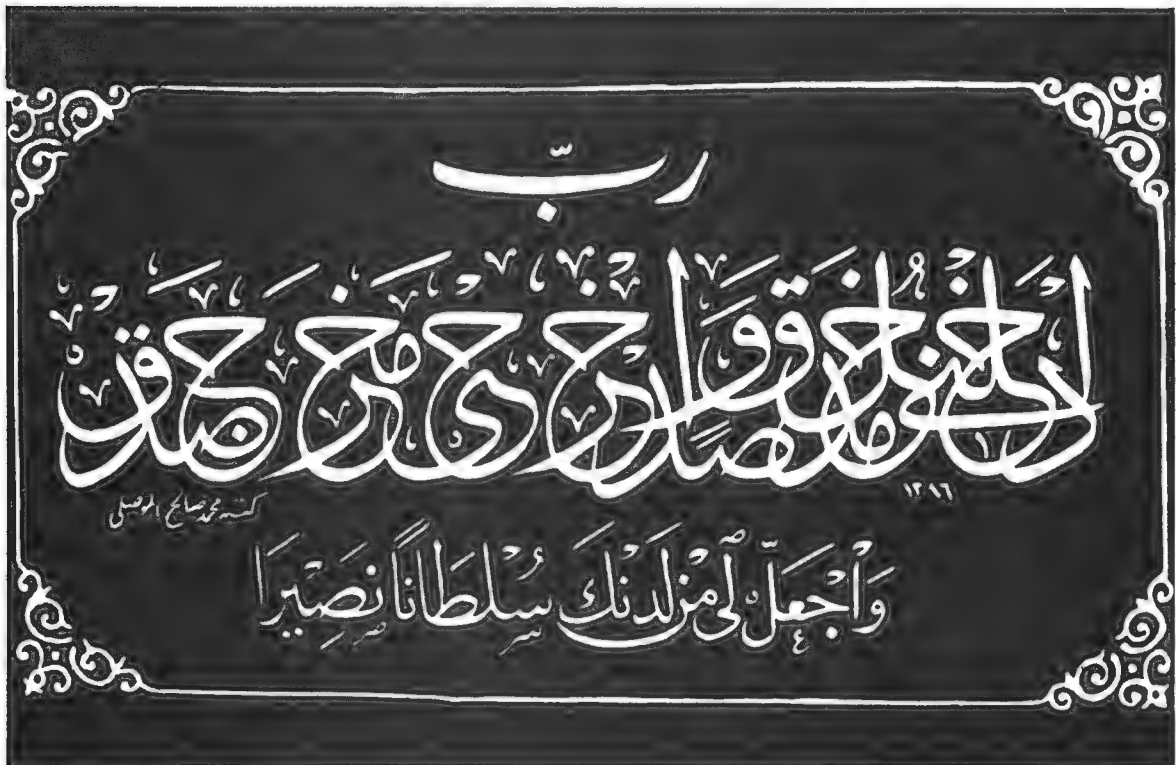 ربّ
ادخلني مدخل صدق واخرجني مخرج صدق
١٣٨٦
كتبه محمد صالح الموصلي
وَاجْعَلّ لي مِن لَدُنكَ سُلْطَانًا نَصِيرًا